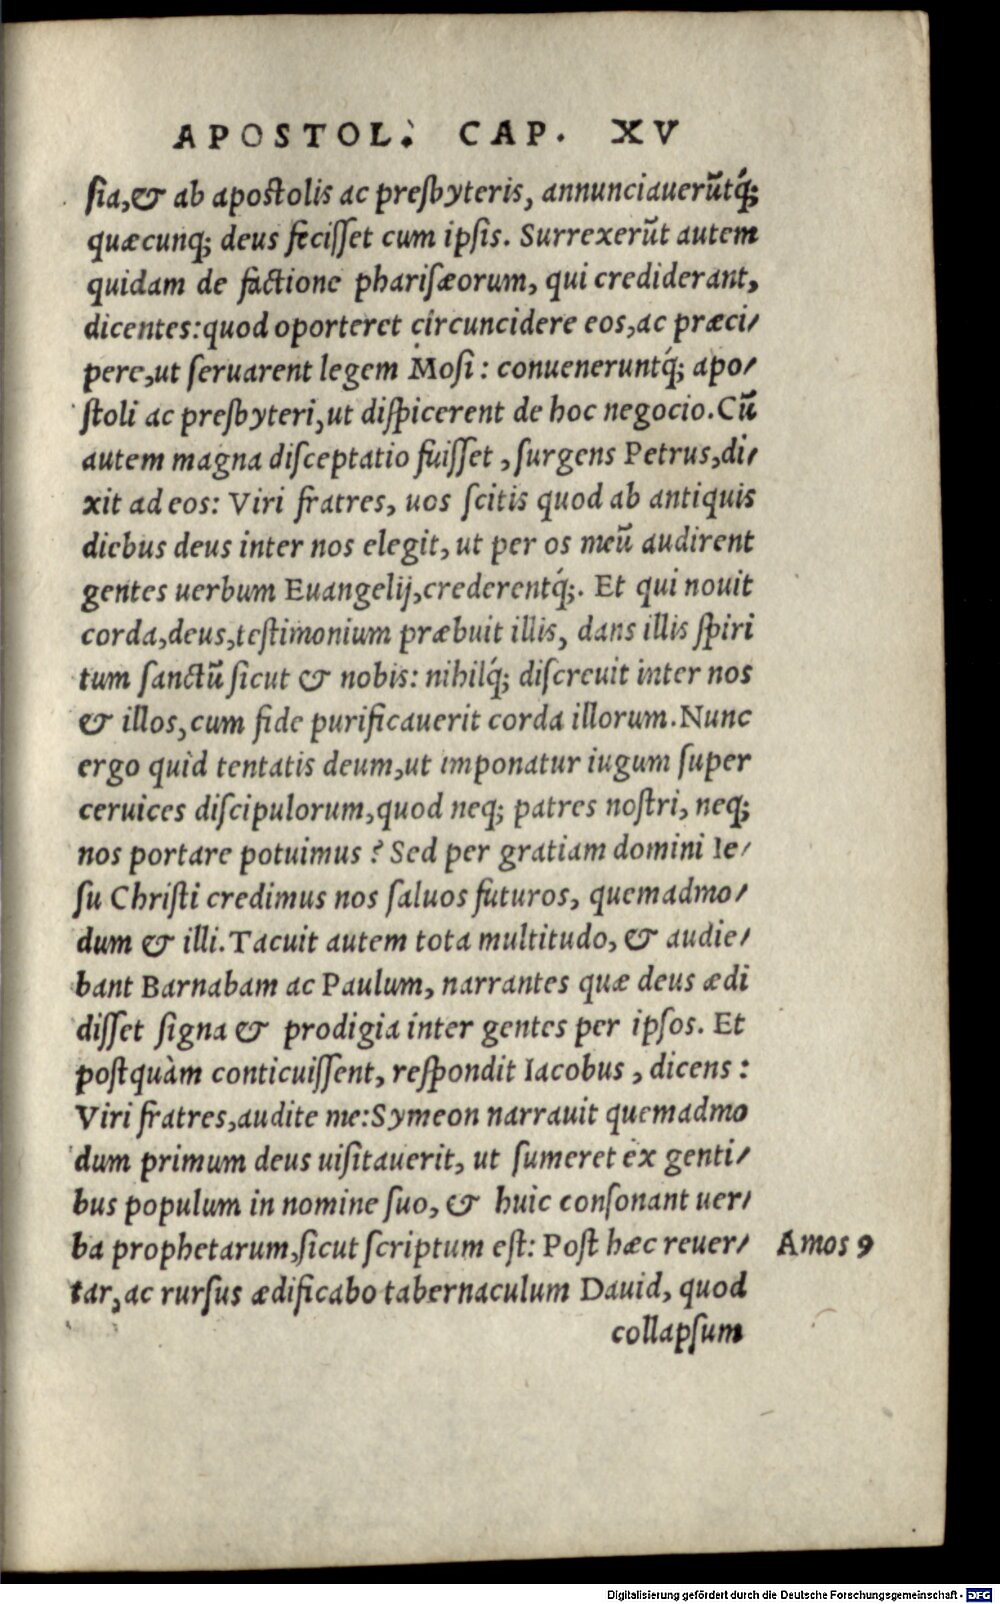 APOSTOL. CAP. XV
sia,& ab apostolis ac presbyteris, annunciauerũtq́;
quæcunq; deus fecisset cum ipsis. Surrexerũt autem
quidam de factione pharisæorum, qui crediderant,
dicentes:quod oporteret circuncidere eos,ac præci/
pere,ut seruarent legem Mosi: conueneruntq́; apo/
stoli ac presbyteri,ut dispicerent de hoc negocio.Cũ
autem magna disceptatio fuisset, surgens Petrus,di/
xit ad eos: Viri fratres, uos scitis quod ab antiquis
diebus deus inter nos elegit, ut per os meũ audirent
gentes uerbum Euangelij,crederentq́;. Et qui nouit
corda,deus,testimonium præbuit illis, dans illis spiri
tum sanctũ sicut & nobis: nihilq́; discreuit inter nos
& illos,cum fide purificauerit corda illorum.Nunc
ergo quid tentatis deum,ut imponatur iugum super
ceruices discipulorum,quod neq; patres nostri, neq;
nos portare potuimus? Sed per gratiam domini Ie/
su Christi credimus nos saluos futuros, quemadmo/
dum & illi.Tacuit autem tota multitudo, & audie/
bant Barnabam ac Paulum, narrantes quæ deus ædi
disset signa & prodigia inter gentes per ipsos. Et
postquàm conticuissent, respondit Iacobus, dicens:
Viri fratres,audite me:Symeon narrauit quemadmo
dum primum deus uisitauerit, ut sumeret ex genti/
bus populum in nomine suo, & huic consonant uer/
ba prophetarum,sicut scriptum est: Post hæc reuer/ Amos 9
tar,ac rursus ædificabo tabernaculum Dauid, quod
collapsum
Digitalisierung gefördert durch die Deutsche Forschungsgemeinschaft - DFG